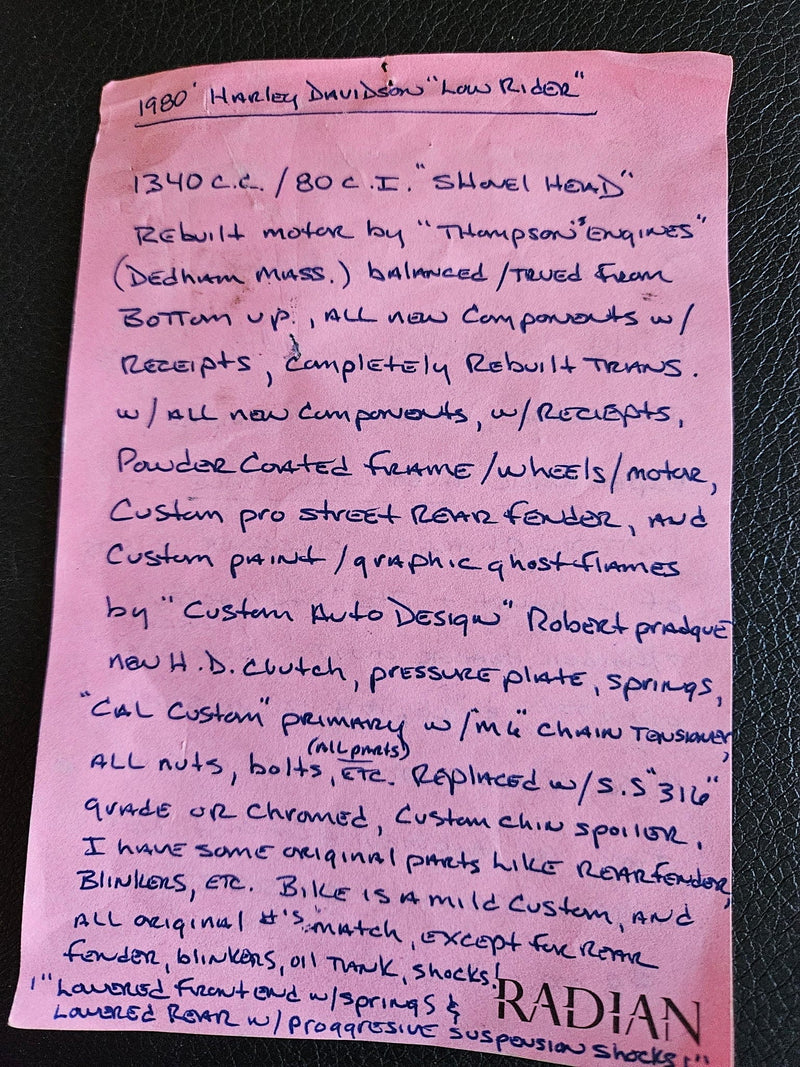 1980' HARLEY DAVIDSON "LOW RIDER"
1340 C.C. / 80 C.I. "SHOVEL HEAD"
REBUILT MOTOR by "THOMPSON'S ENGINES"
(DEDHAM MASS.) BALANCED / TRUED FROM
BOTTOM UP., ALL NEW COMPONENTS W/
RECEIPTS, COMPLETELY REBUILT TRANS.
W/ ALL NEW COMPONENTS, W/ RECIEPTS,
POWDER COATED FRAME / WHEELS / MOTOR,
CUSTOM PRO STREET REAR FENDER, AND
CUSTOM PAINT / GRAPHIC GHOST-FLAMES
by "CUSTOM AUTO DESIGN" ROBERT PRADQUE
NEW H.D. CLUTCH, PRESSURE PLATE, SPRINGS,
"CAL CUSTOM" PRIMARY W/ "M6" CHAIN TENSIONER,
(ALL PARTS)
ALL NUTS, BOLTS, ETC. REPLACED W/ S.S "316"
GRADE OR CHROMED, CUSTOM CHIN SPOILER.
I HAVE SOME ORIGINAL PARTS LIKE REAR FENDER,
BLINKERS, ETC. BIKE IS A MILD CUSTOM, AND
ALL ORIGINAL #'S MATCH, EXCEPT FOR REAR
FENDER, BLINKERS, OIL TANK, SHOCKS!
!"LOWERED FRONT END W/ SPRINGS &
LOWERED REAR W/ PROGGRESIVE SUSPENSION SHOCKS!"
RADIAN